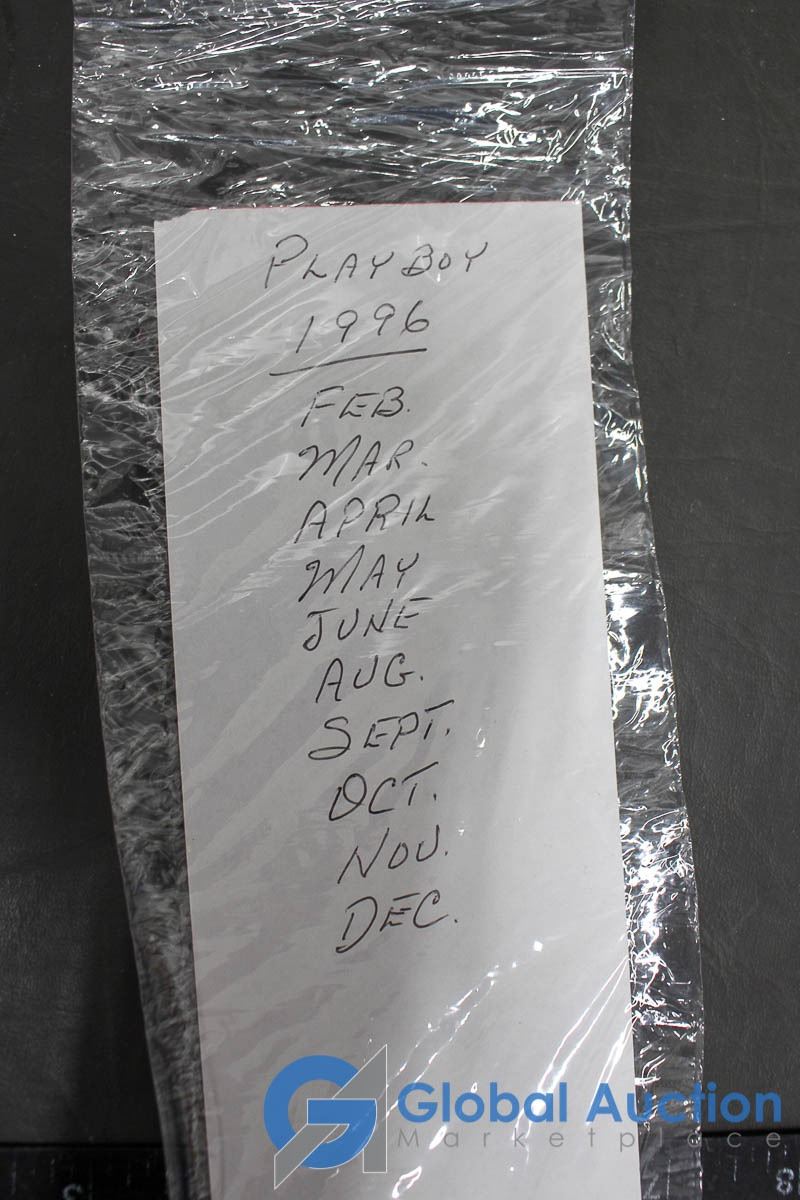 PLAYBOY
1996
FEB.
MAR.
APRIL
MAY
JUNE
AUG.
SEPT.
OCT.
NOV.
DEC.
Global Auction
Marketplace